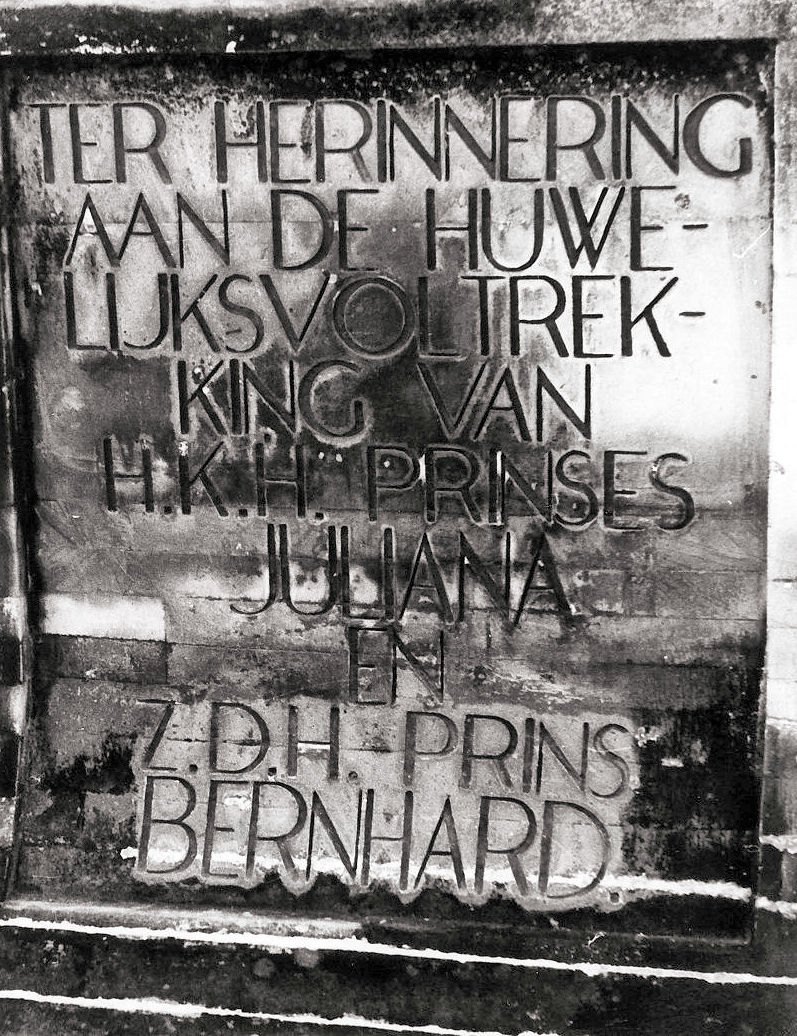 TER HERINNERING
AAN DE HUWE-
LIJKSVOLTREK-
KING VAN
H.K.H. PRINSES
JULIANA
EN
Z.D.H. PRINS
BERNHARD.